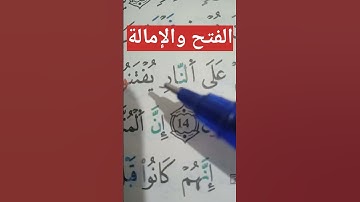 الفتح والإمالة
عَلَى اَ۬لنّ۪ارِ يُفْتَنُو
14 إِنَّ اَ۬لْمُتَّ
إِنَّهُمْ كَانُوا۟ قَبْ